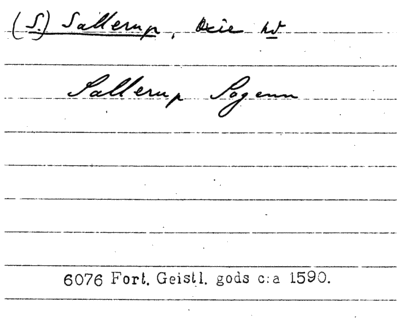 (S.) Sallerup, Oxie hd
Sallerup Sogenn
6076 Fort. Geistl. gods c:a 1590.